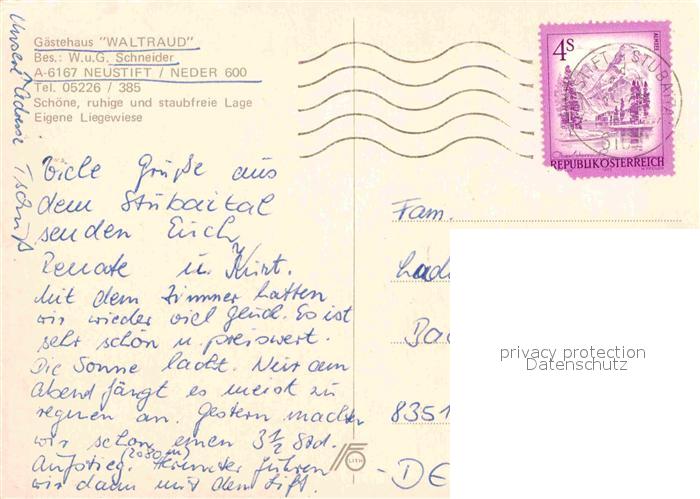 Gästehaus "WALTRAUD"
Bes.: W.u.G. Schneider
A-6167 NEUSTIFT / NEDER 600
Tel. 05226 / 385
Schöne, ruhige und staubfreie Lage
Eigene Liegewiese
Unsere Adresse
Tschüß
Viele Grüße aus
dem Stubaital
senden Euch
Renate u. Kurt.
Mit dem Zimmer hatten
wir wieder viel Glück. Es ist
sehr schön u. preiswert.
Die Sonne lacht. Nur am
Abend fängt es meist zu
regnen an. Gestern machten
wir schon einen 3 1/2 Std.
Aufstieg. Herunter fuhren
wir dann mit dem Lift.
4S
REPUBLIK ÖSTERREICH
STUBAITAL
Fam.
8351
- DE
LITH
privacy protection
Datenschutz